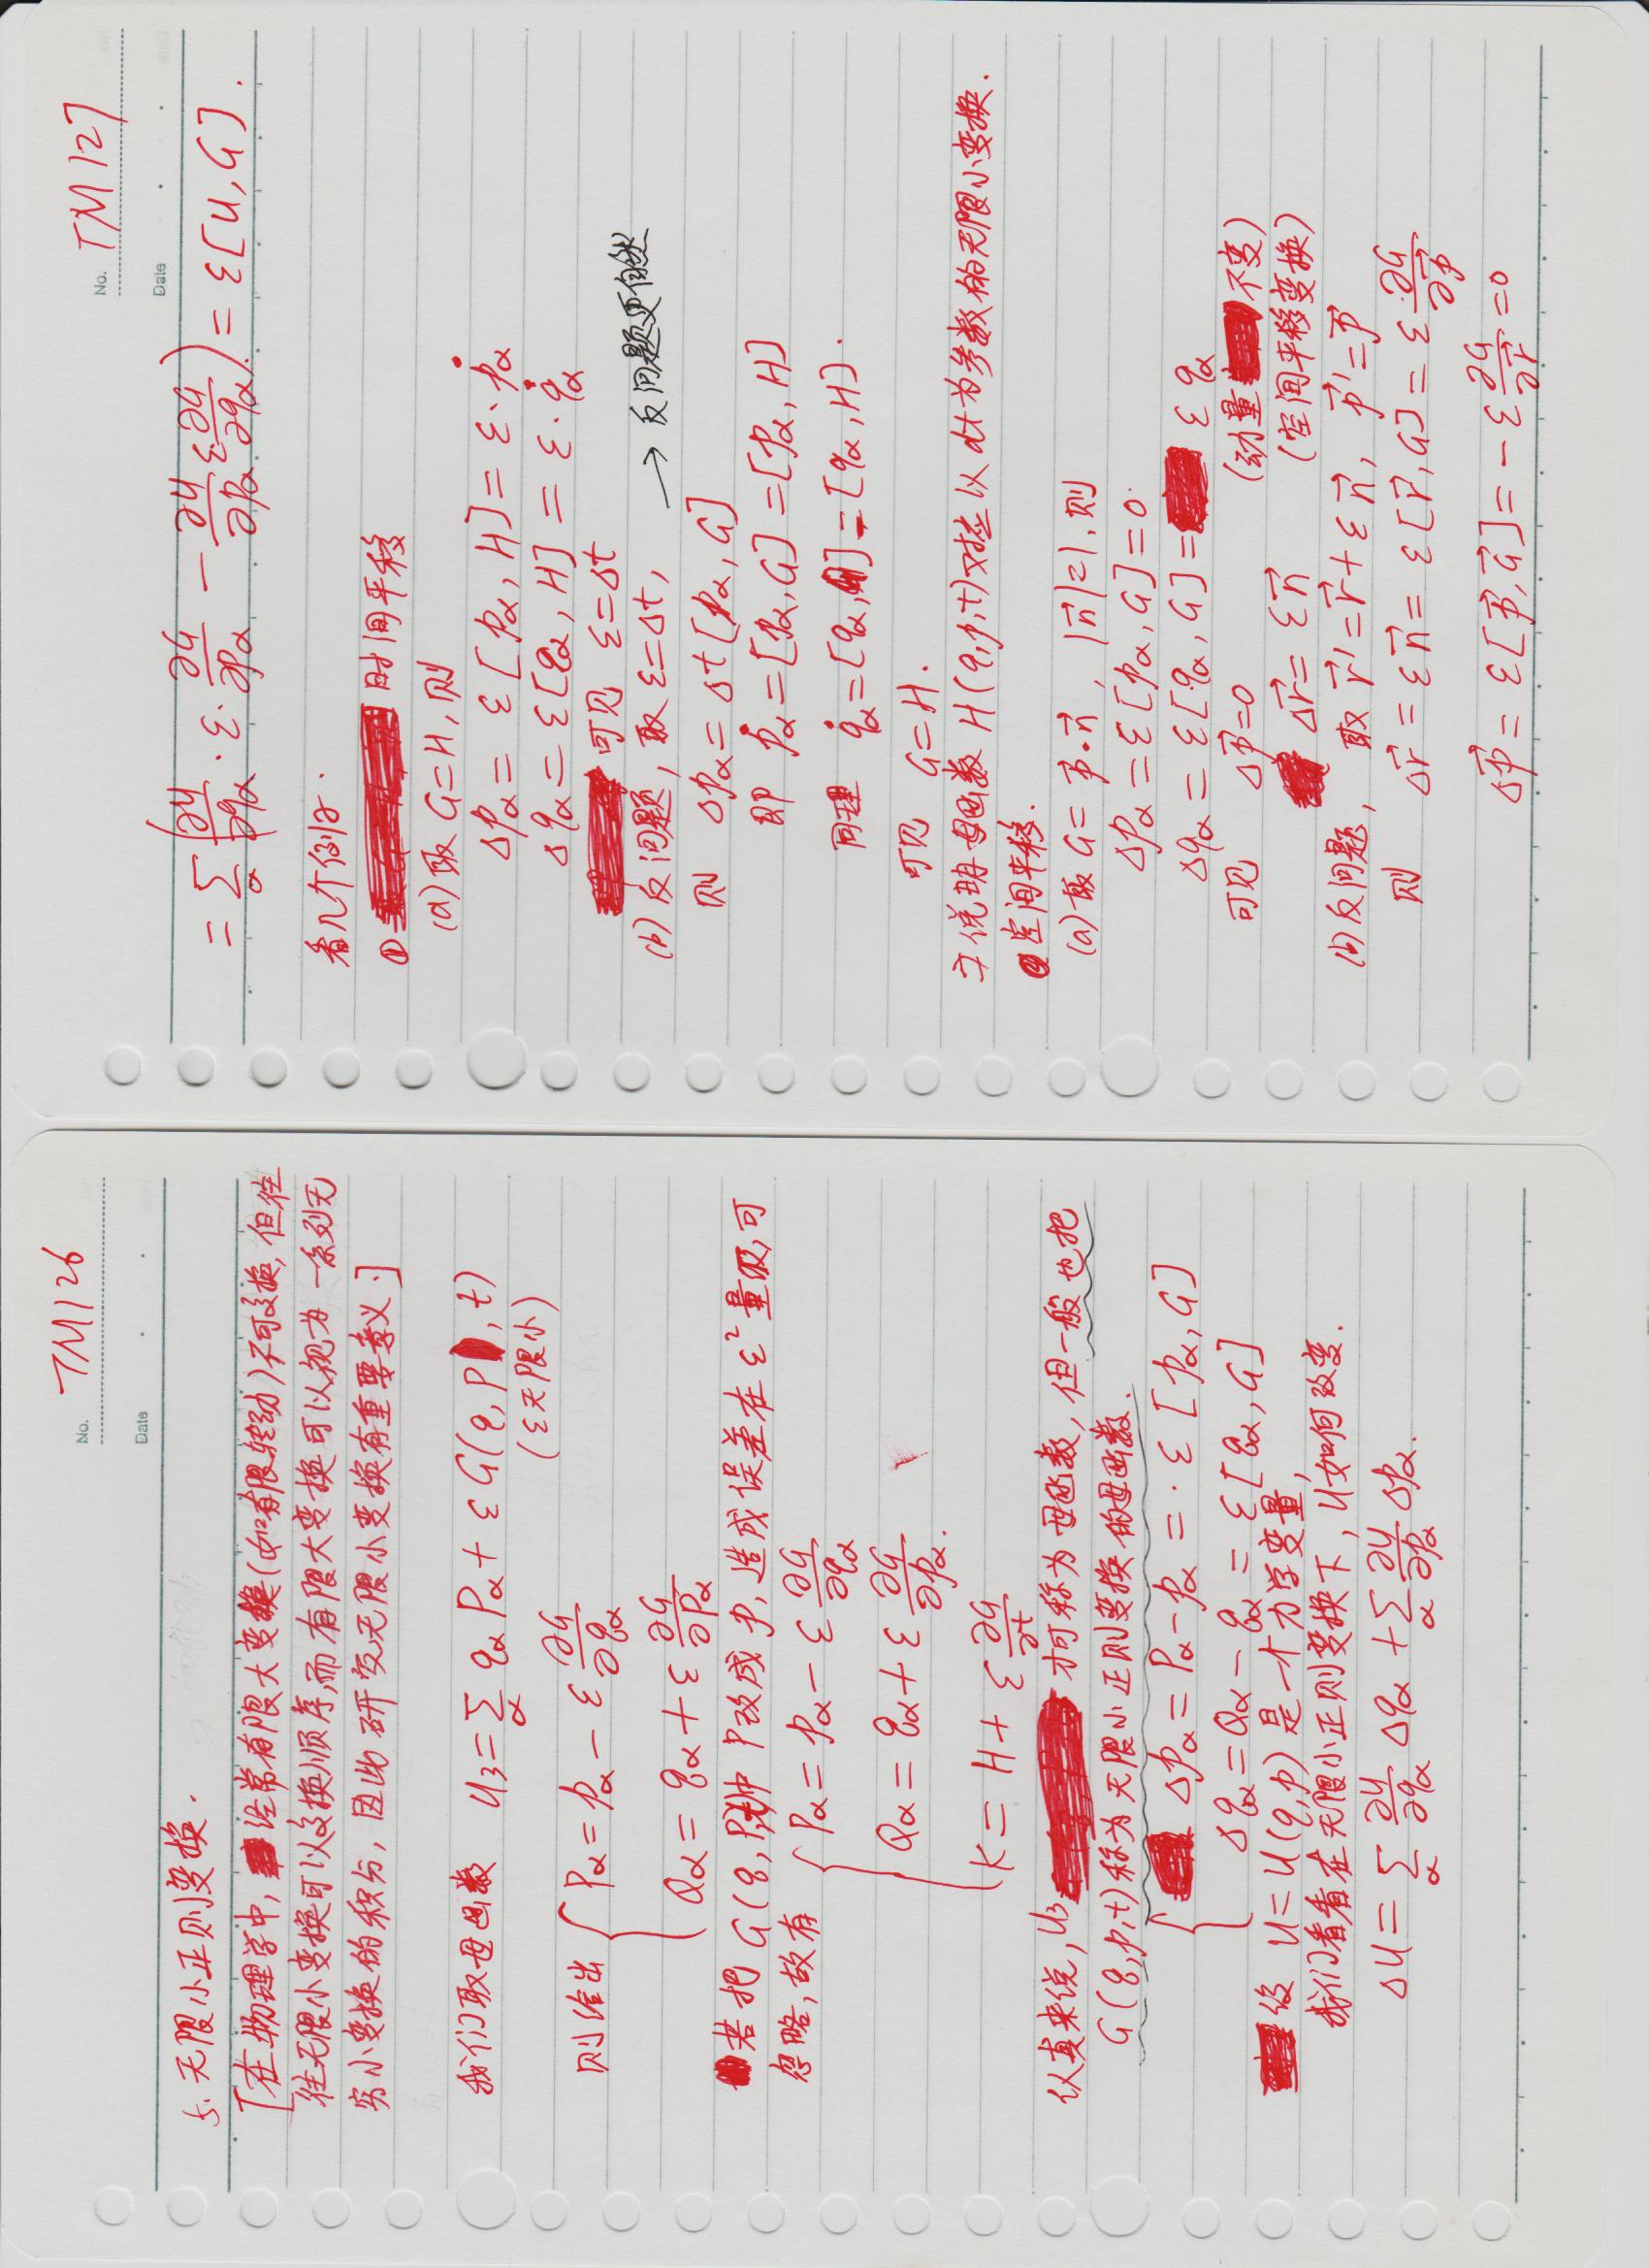 No. TM126
Date
5. 无限小正则变换.
[在物理学中, 经常有限大变换(如有限转动)不可交换, 但往
往无限小变换可以交换顺序,而有限大变换可以视为一系列无
穷小变换的积分, 因此研究无限小变换有重要意义.]
我们取母函数 U₃=∑_α q_α P_α + εG(q, P, t)
(ε无限小)
则给出 { P_α = p_α − ε ∂G/∂q_α
Q_α = q_α + ε ∂G/∂P_α
若把 G(q,P,t)中 P改成 p, 造成误差在 ε² 量级,可
忽略,故有 { P_α = p_α − ε ∂G/∂q_α
Q_α = q_α + ε ∂G/∂p_α.
K = H + ε ∂G/∂t
认真来说, U₃ 才可称为母函数, 但一般也把
G(q,p,t)称为无限小正则变换的母函数.
{ Δp_α = P_α − p_α = · ε [p_α, G]
Δq_α = Q_α − q_α = ε[q_α, G]
设 U=U(q,p) 是一个力学变量,
我们看看在无限小正则变换下, U如何改变.
ΔU = ∑_α ∂U/∂q_α Δq_α + ∑_α ∂U/∂p_α Δp_α.
No. TM127
Date
= ∑_α (∂U/∂q_α · ε · ∂G/∂p_α − ∂U/∂p_α ε ∂G/∂q_α) = ε[U, G].
看几个例子.
① 时间平移
(a) 取 G=H, 则
Δp_α = ε[p_α, H] = ε·ṗ_α
Δq_α = ε[q_α, H] = ε·q̇_α
可见 ε=Δt
(b) 反问题, 取 ε=Δt, → 反问题更自然
则 Δp_α = Δt[p_α, G]
即 ṗ_α = [p_α, G] = [p_α, H]
同理 q̇_α = [q_α, G] = [q_α, H].
可见 G=H.
⇒ 说明母函数 H(q,p,t)对应以 dt为参数的无限小变换.
② 空间平移.
(a) 取 G= p⃗·n⃗, |n⃗|=1, 则
Δp_α = ε[p_α, G]=0.
Δq_α = ε[q_α, G]= ε q_α
可见 Δp⃗=0 (动量 不变)
Δr⃗ = εn⃗ (空间平移变换)
(b) 反问题, 取 r⃗'=r⃗+εn⃗, p⃗'=p⃗
则 Δr⃗ = εn⃗ = ε[r⃗, G] = ε ∂G/∂p⃗
Δp⃗ = ε[p⃗, G⃗] = −ε ∂G/∂r⃗ = 0